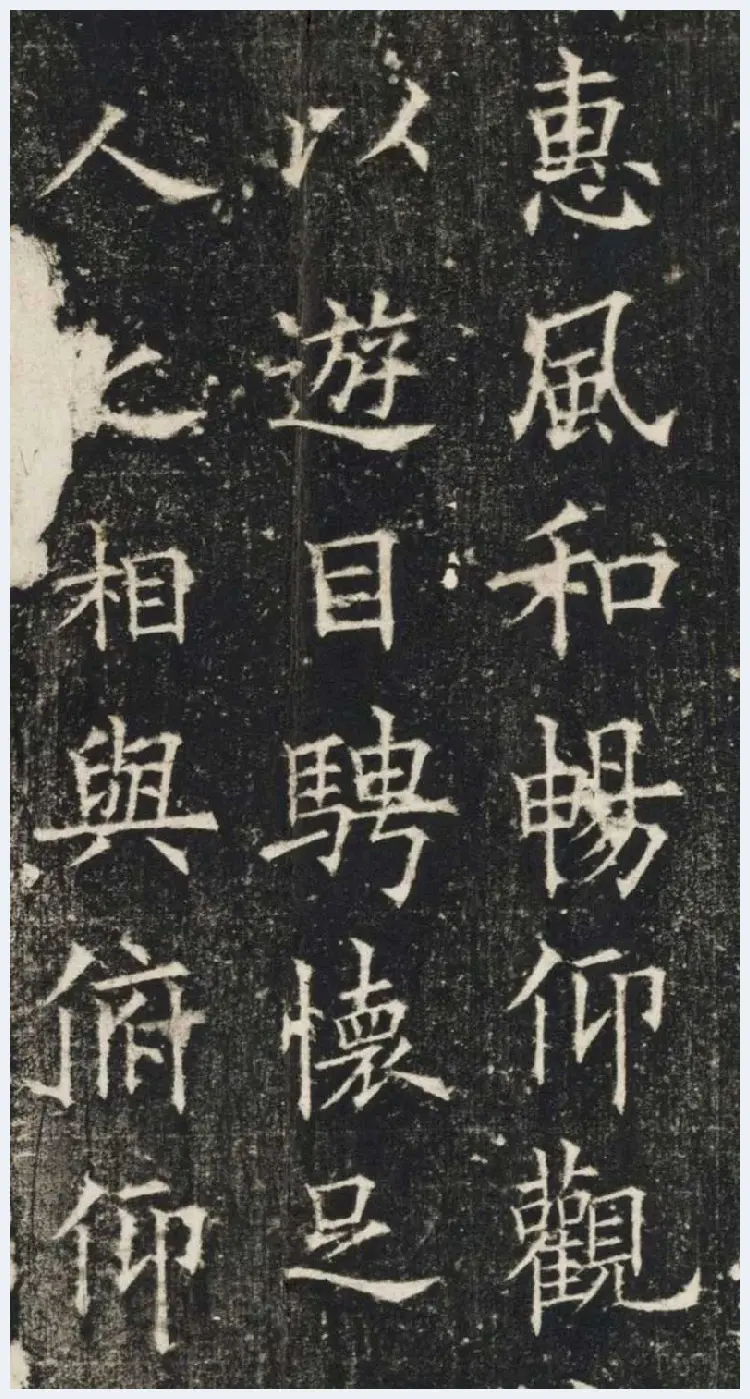 惠風和暢仰觀
以遊目騁懷足
人之相與俯仰